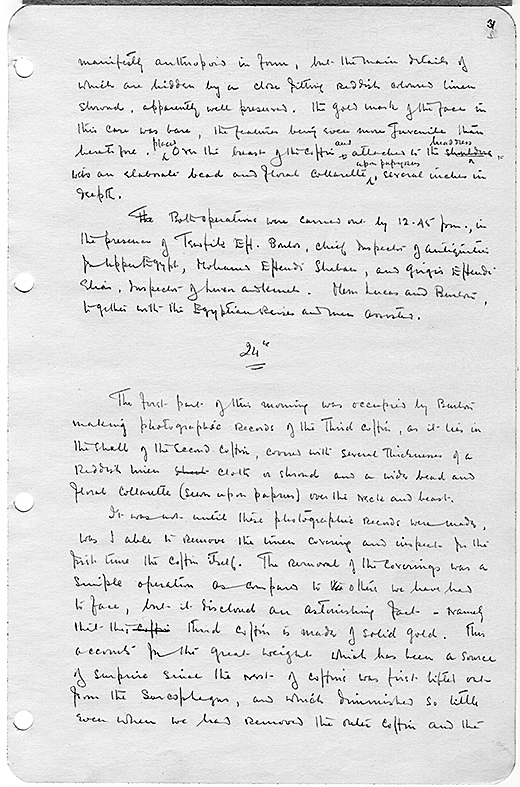 31
manifestly anthropoid in form, but the main details of
which are hidden by a close fitting reddish coloured linen
shroud, apparently well preserved. The gold mask of the face in
this case was bare, the features being even more juvenile than
heretofore. placed Over the breast of the coffin and attached to the headdress
was an elaborate bead and floral collarette, sewn upon papyrus, several inches in
depth.
The Both operations were carried out by 12.45 p.m., in
the presence of Tewfik Eff. Boulos, Chief Inspector of Antiquities
for Upper Egypt, Mohamed Effendi Shaban, and Girgis Effendi
Elias, Inspector of Luxor and Keneh. Mess. Lucas and Burton,
together with the Egyptian Reises and men assisted.
24th
The first part of this morning was occupied by Burton
making photographic records of the Third Coffin, as it lies in
the shell of the Second Coffin, covered with several thicknesses of a
reddish linen cloth or shroud and a wide bead and
floral collarette (sewn upon papyrus) over the neck and breast.
It was not until these photographic records were made,
was I able to remove the linen covering and inspect for the
first time the coffin itself. The removal of the coverings was a
simple operation as compared to the others we have had
to face, but it disclosed an astonishing fact - namely
that the coffin third coffin is made of solid gold. This
accounts for the great weight which has been a source
of surprise since the nest of coffins was first lifted out
from the Sarcophagus, and which diminished so little
even when we had removed the outer coffin and the